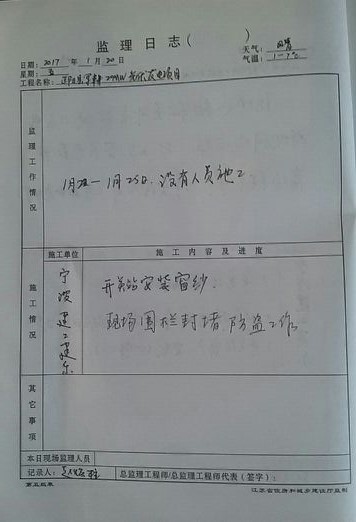 监理日志( )
日期: 2017 年 1 月 20 日
天气: 晴
星期: 五
气温: 1-7℃
工程名称:
监理工作情况
1月25日. 没有人员施工
施工单位 施工内容及进度
施工情况
宁波建工建乐
开关站安装窗纱.
现场围栏封堵防盗工作
其它事项
本日现场监理人员
记录人: 总监理工程师/总监理工程师代表(签字):
第五版表 江苏省住房和城乡建设厅监制